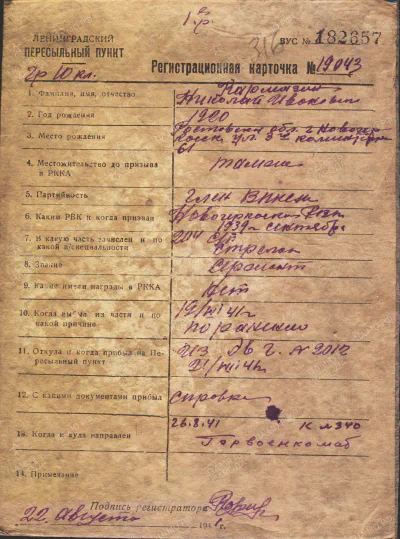 1 гр.
ЛЕНИНГРАДСКИЙ
ПЕРЕСЫЛЬНЫЙ ПУНКТ
316
ВУС № 182657
Гр III кл.
Регистрационная карточка № 19043
1. Фамилия, имя, отчество Кармазин
Николай Иванович
2. Год рождения 1920
3. Место рождения Ростовская обл. г. Новочер
касск ул.
61
4. Местожительство до призыва
в РККА
там же
5. Партийность член ВЛКСМ
6. Каким РВК и когда призван Новочеркасск
1939 г сентябрь
7. В какую часть зачислен и по
какой в/специальности
204
Стрелок
8. Звание Сержант
9. Какие имеет награды в РККА Нет
10. Когда выбыл из части и по
какой причине
19/VIII 41 г
по ранению
11. Откуда и когда прибыл на Пе-
ресыльный пункт
Из эв г. № 2012
21/VIII 41 г
12. С какими документами прибыл справка
26.8.41 К
13. Когда и куда направлен
Горвоенкомат
14. Примечание
Подпись регистратора
22 Августа 1941 г.